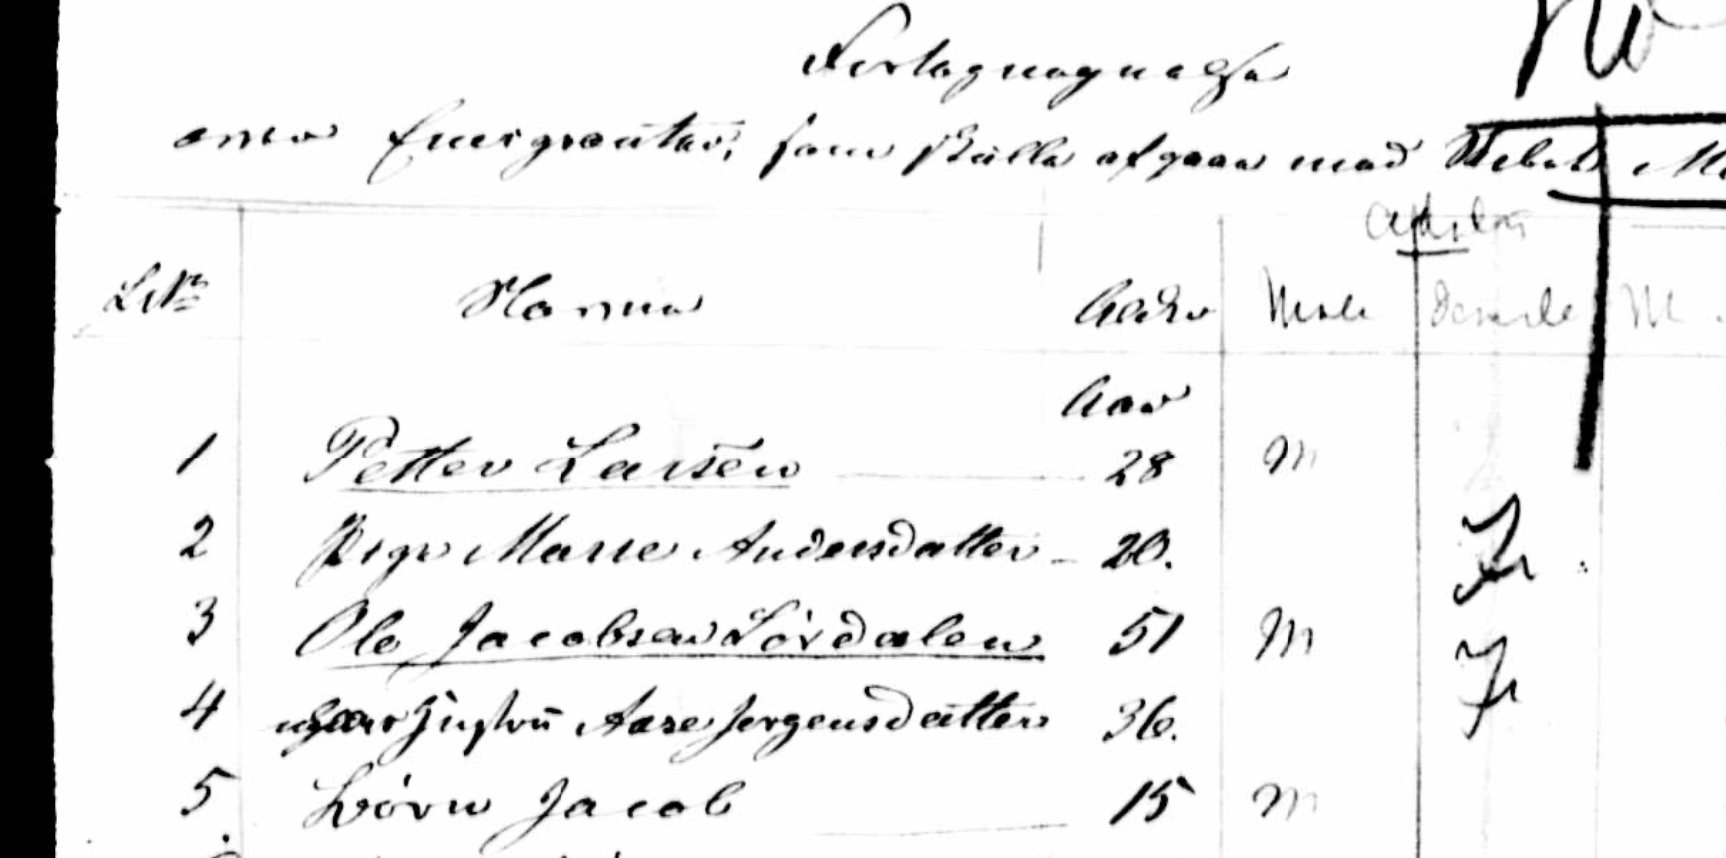 Fortegnegnelse
over Emigranter, som skulle afgaae med Skibet
L No Navne Alder Male Female M
Aar
1 Petter Larsen 28 M
2 Pige Marie Andersdatter - 20. F
3 Ole Jacobsen Lördalen 51 M
4 Hustru Aase Jørgensdatter 36. F
5 Børn Jacob 15 M